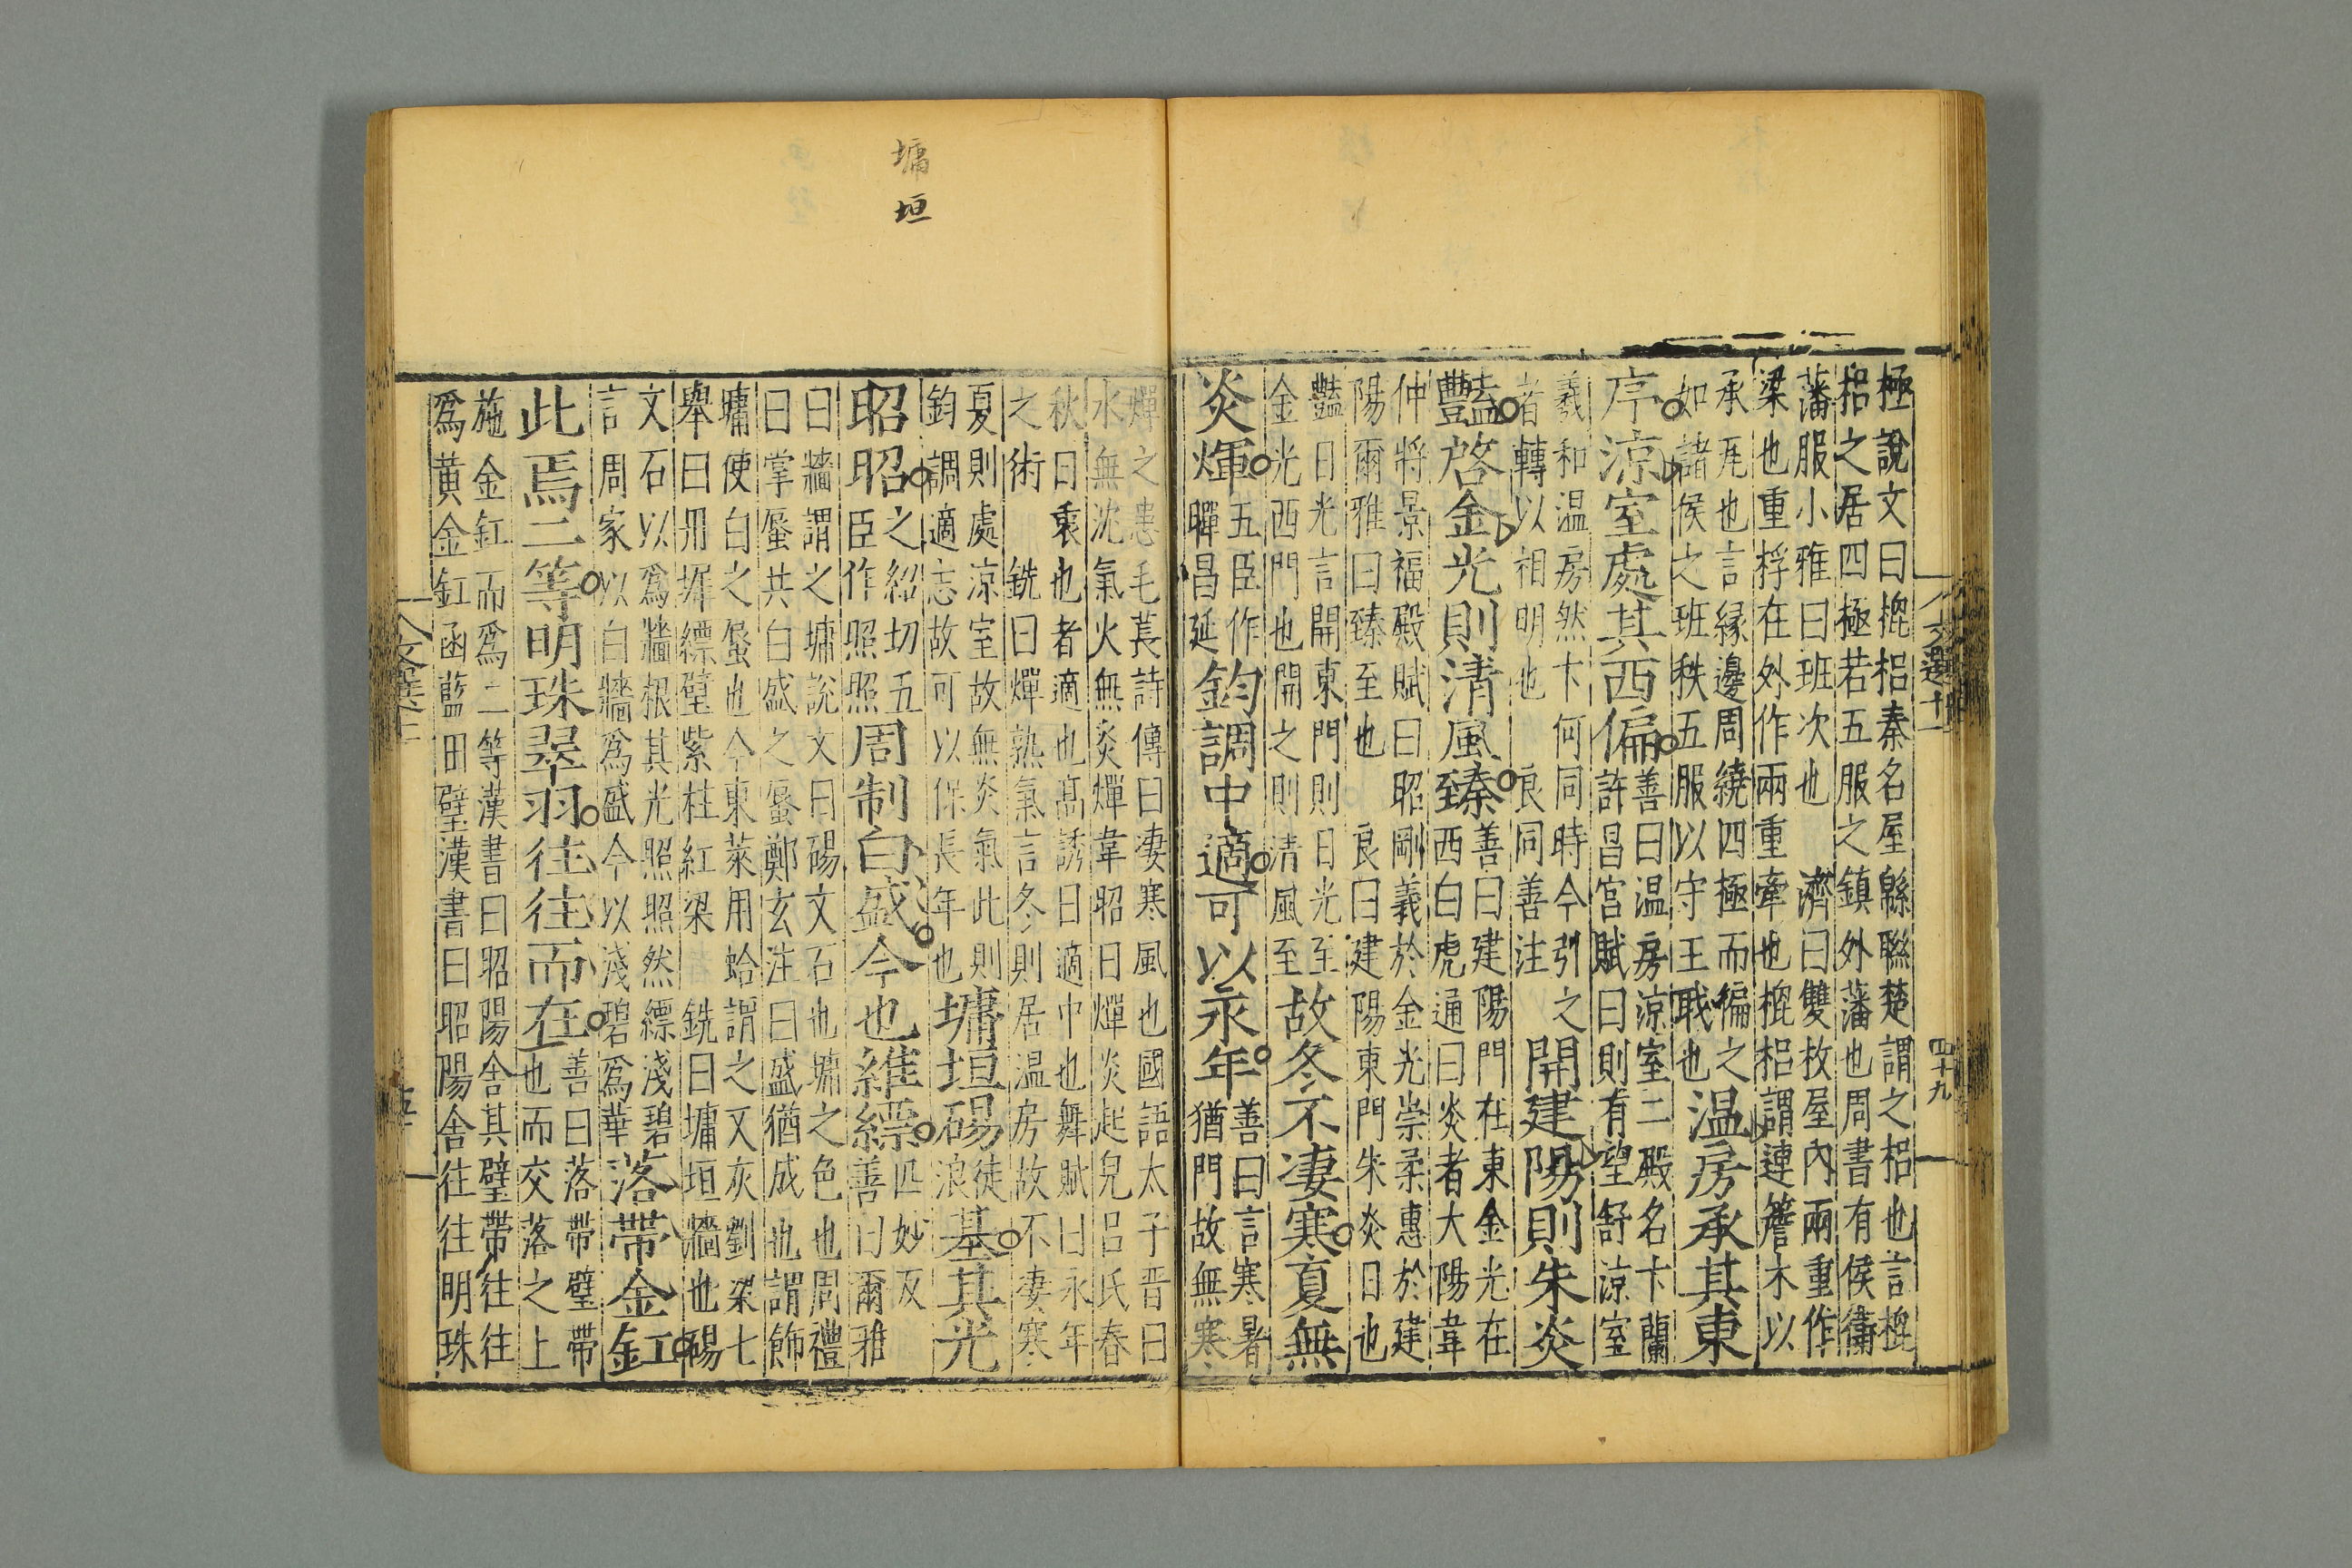 極說文曰㮰梠秦名屋緜聯楚謂之梠也言㮰
梠之居四極若五服之鎮外藩也周書有侯衞
藩服小雅曰班次也 濟曰雙枚屋內兩重作
梁也重桴在外作兩重牽也㮰梠謂連簷木以
承𠩄也言緣邊周繞四極而徧之
如諸侯之班秩五服以守王職也
温房承其東
序凉室處其西偏
善曰温房凉室二殿名卞蘭
許昌宮賦曰則有望舒凉室
羲和温房然卞何同時今引之
者轉以相明也 良同善注
開建陽則朱炎
豔啓金光則清風臻
善曰建陽門在東金光在
西白虎通曰炎者大陽韋
仲將景福殿賦曰昭剛義於金光崇柔惠於建
陽爾雅曰臻至也 良曰建陽東門朱炎日也
豔日光言開東門則日光至
金光西門也開之則清風至
故冬不凄寒夏無
炎煇
五臣作
曎昌延
鈞調中適可以永年
善曰言寒暑
猶門故無寒
燀之患毛萇詩傳曰凄寒風也國語太子晋曰
水無沈氣火無炎燀韋昭曰燀炎起皃呂氏春
秋曰衷也者適也高誘曰適中也舞賦曰永年
之術 銑曰燀熟氣言冬則居温房故不凄寒
夏則處凉室故無炎氣此則
鈞調適志故可以保長年也
墉垣碭
徒
浪
基其光
昭昭
之紹切五
臣作照照
周制白盛今也維縹
匹妙反
善曰爾雅
曰牆謂之墉說文曰碭文石也墉之色也周禮
曰掌蜃共白盛之蜃鄭玄注曰盛猶成也謂飾
墉使白之蜃也今東萊用蛤謂之叉灰劉梁七
舉曰丹墀縹壁紫柱紅梁 銑曰墉垣牆也碭
文石以為牆根其光照照然縹淺碧
言周家以白牆為盛今以淺碧為華
落帶金釭
此焉二等明珠翠羽往往而在
善曰落帶壁帶
也而交落之上
施金釭而為二等漢書曰昭陽舎其壁帶往往
為黄金釭函藍田璧漢書曰昭陽舎往往明珠
文選十一
四十九
墉
垣